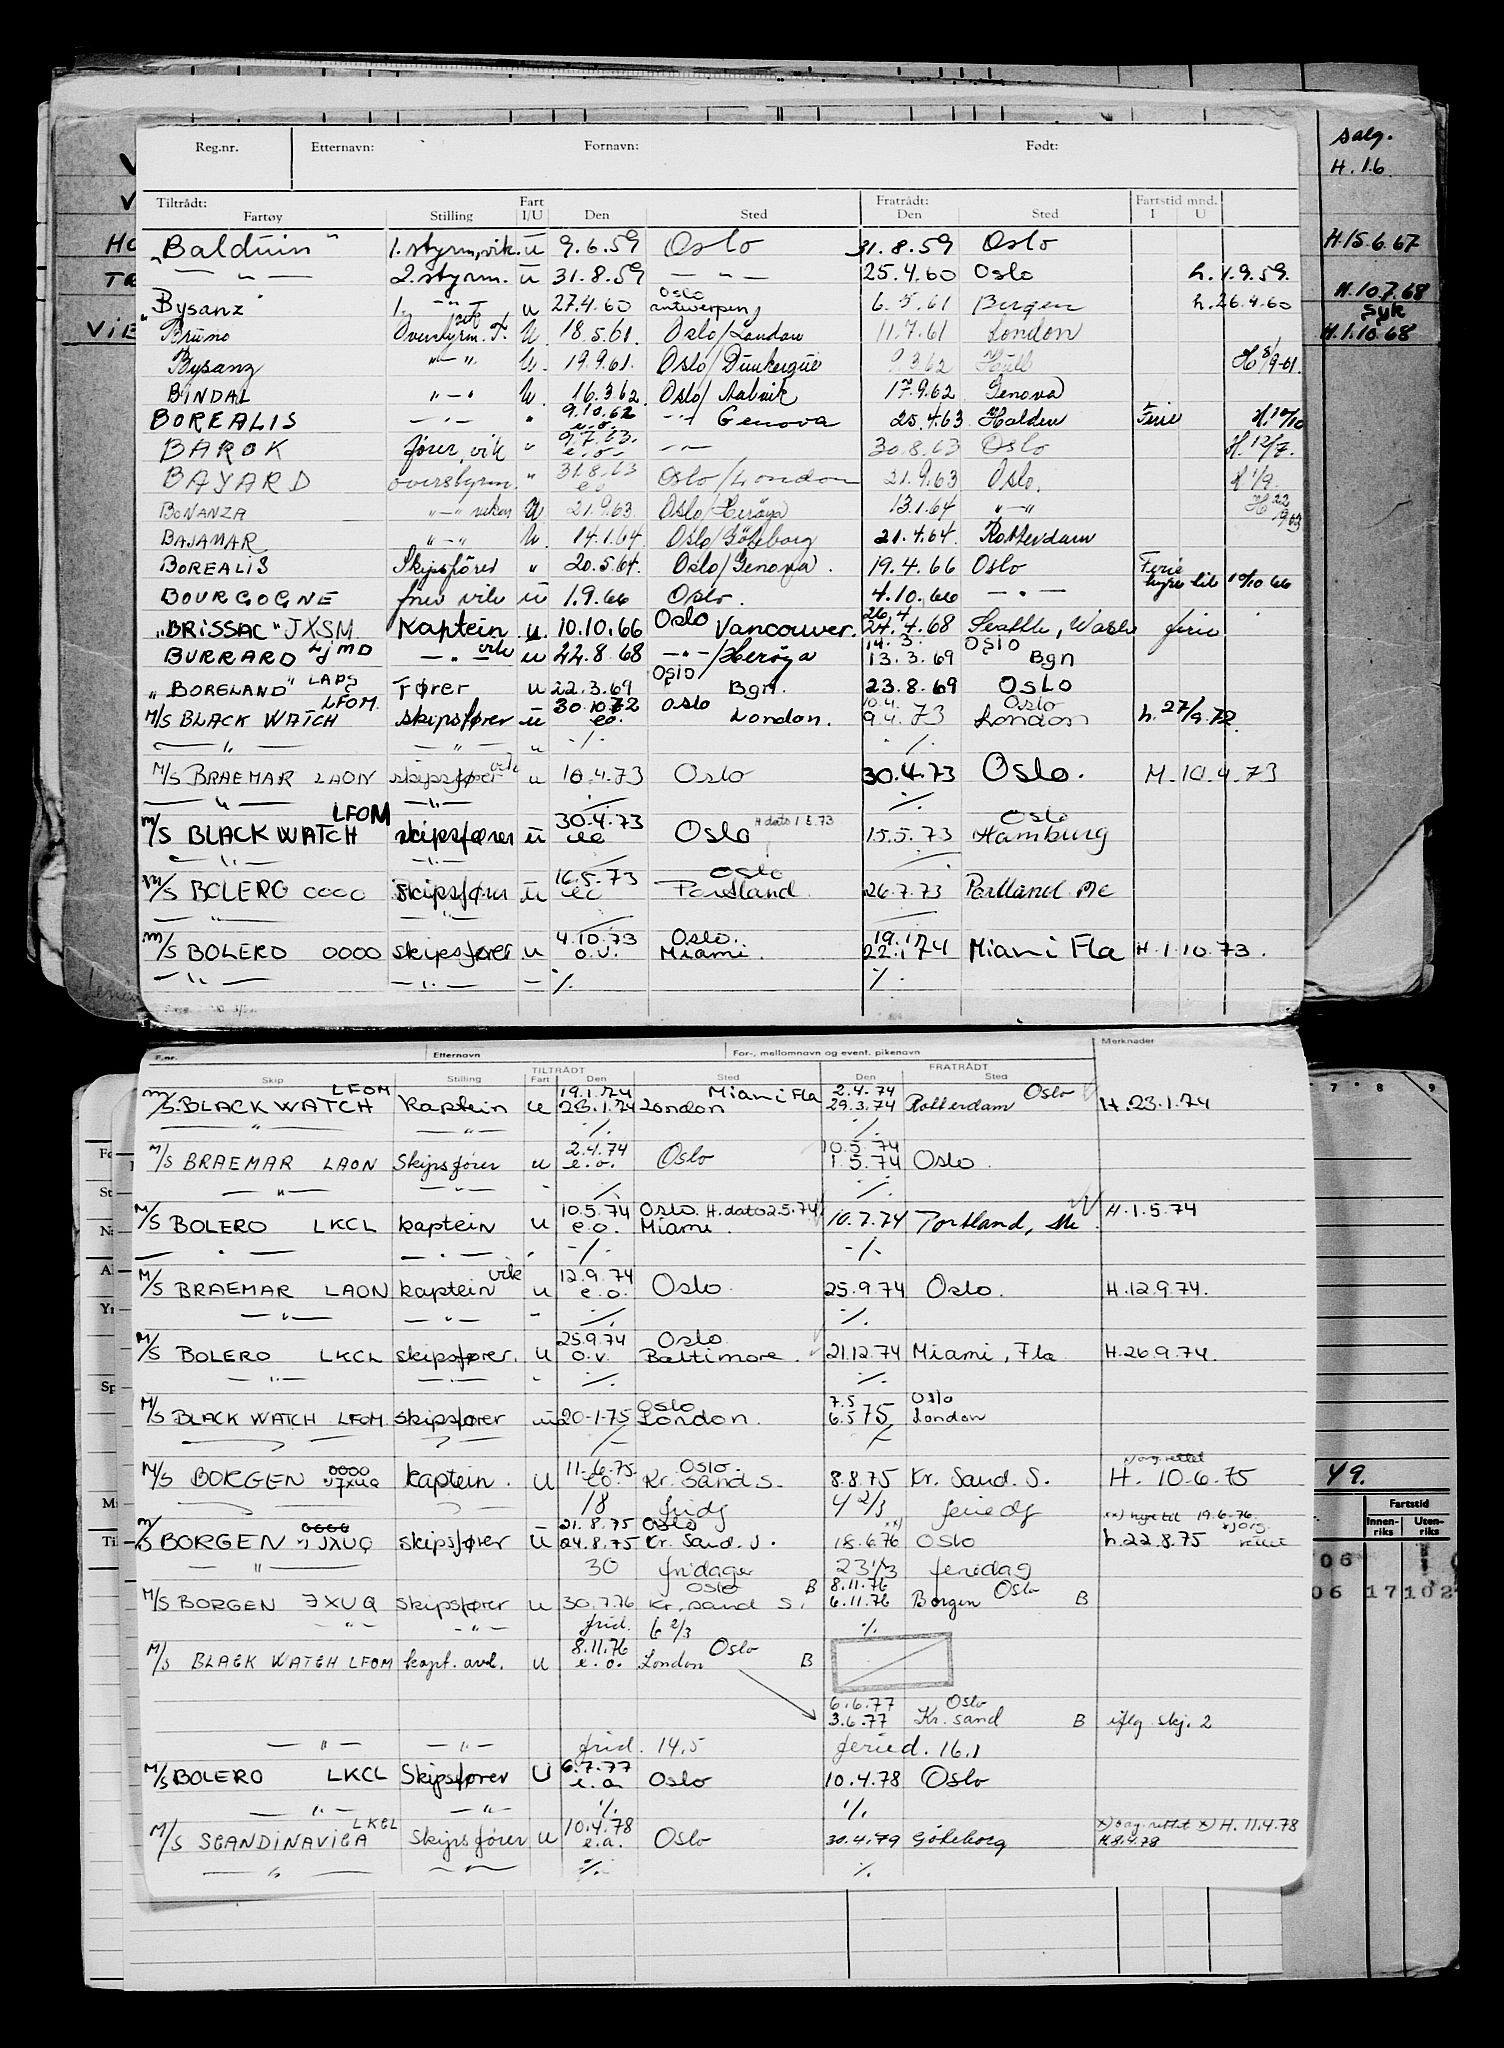 salg.
H. 1.6.
Reg.nr. Etternavn: Fornavn: Født:
Tiltrådt: Fart Fratrådt: Fartstid mnd.
Fartøy Stilling I/U Den Sted Den Sted I U
"Balduin" 1. styrm, vik. u 9.6.59 Oslo 31.8.59 Oslo
H.15.6.67
— " — 2. styrm. u 31.8.59 — " — 25.4.60 Oslo h. 1.9.59.
Oslo
"Bysanz" 1. — " — u 27.4.60 antwerpen 6.5.61 Bergen h. 26.4.60
H.10.7.68
syk
Bruno Overstyrm. vik U. 18.5.61. Oslo/London 11.7.61 London
H.1.10.68
Bysanz " — " U. 19.9.61. Oslo/Dunkerque 9.3.62 Hull H 8/9-61.
BINDAL " — " U. 16.3.62. Oslo/ 17.9.62 Genova
9.10.62
BOREALIS — " — " e.o. — " — Genova 25.4.63 Halden Ferie H. 10/10
9.7.63.
BAROK fører, vik " e.o. — " — 30.8.63 Oslo H. 12/7.
31.8.63
BAYARD overstyrm. " eo Oslo/London 21.9.63 Oslo. H 1/9.
BONANZA " — " vikar U 21.9.63. Oslo/Herøya 13.1.64 " — " H 22/9 63
BAJAMAR " — " U. 14.1.64. Oslo/Göteborg 21.4.64. Rotterdam
BOREALIS Skipsfører " 20.5.64. Oslo/Genova. 19.4.66 Oslo Ferie
BOURGOGNE fører vik u 1.9.66 Oslo. 4.10.66 — " — hyre til 10/10 66
26.4
"BRISSAC" JXSM Kaptein u. 10.10.66 Oslo Vancouver. 24.4.68 Seattle, Wash ferie
14.3. Oslo
BURRARD LJMD — " — vik u 22.8.68 — " —/Herøya 13.3.69 Bgn
Oslo
"BORGLAND" LADS Fører u 22.3.69 Bgn. 23.8.69 OSLO
LFOM. 30.10.72 Oslo 10.4. Oslo
M/S BLACK WATCH skipsfører u eo. London. 9.4.73 London h. 27/9.72
— " — — " — " -/. ./.
M/S BRAEMAR LAON skipsfører vik u 10.4.73 Oslo 30.4.73 Oslo. H. 10.4.73
— " — — " — ./. ./.
LFOM 30.4.73 H dato 1.5.73 Oslo
M/S BLACK WATCH skipsfører u eo Oslo 15.5.73 Hamburg
— " — — " — ./. ./.
16.5.73 Oslo
M/S BOLERO OOOO Skipsfører u eo Portland 26.7.73 Portland Me
— " — — " — ./. ./.
4.10.73 Oslo. 19.1.74
M/S BOLERO OOOO skipsfører u o.v. Miami. 22.1.74 Miami Fla H. 1.10.73.
— " — — " — — ./. ./.
F.nr. Etternavn For-, mellomnavn og event. pikenavn Merknader
TILTRÅDT FRATRÅDT
Skip Stilling Fart Den Sted Den Sted
LFOM 19.1.74 Miami Fla 2.4.74 Oslo
M/S. BLACK WATCH kaptein u 23.1.74 London 29.3.74 Rotterdam H. 23.1.74
— " — — " — ./. ./.
2.4.74 10.5.74
M/S BRAEMAR LAON Skipsfører u e.o. Oslo 1.5.74 Oslo.
— " — — " — - ./. ./.
10.5.74 Oslo. H. dato 2.5.74
M/S BOLERO LKCL kaptein u e.o. Miami. 10.7.74 Portland, Me H. 1.5.74
— " — — " — -/. -/.
12.9.74
M/S BRAEMAR LAON kaptein vik u e.o. Oslo. 25.9.74 Oslo. H. 12.9.74.
— " — — " — - ./. ./.
25.9.74 Oslo
M/S BOLERO LKCL skipsfører. u o.v. Baltimore. 21.12.74 Miami, Fla H. 26.9.74.
— " — — " — - ./. ./.
Oslo 7.5 Oslo
M/S BLACK WATCH LFOM. skipsfører u 20-1-75 London. 6.5 75 London
11.6.75 Oslo. x) org. rettet
M/S BORGEN OOOO x) JXUQ kaptein. u eo. Kr. Sand S. 8.8.75 Kr. Sand. S. H. 10-6-75
18 frid 4 2/3 feried
21.8.75 Oslo xx) xx) hyre til 19.6.76
M/S BORGEN OOOO x) JXUQ skipsfører u 24.8.75 Kr. Sand. S. 18.6.76 Oslo h. 22.8.75 x) org. rettet
— " — 30 fridager 23 1/3 feriedag
Oslo B 8.11.76 Oslo
M/S BORGEN JXUQ skipsfører u 30.7.76 Kr. sand S. 6.11.76 Borgen B
— " — — " — frid. 6 2/3 ./.
8.11.76 Oslo
M/S BLACK WATCH LFOM kapt. avl. u e.o. London B
6.6.77 Oslo
3.6.77 Kr. sand B iflg skj. 2
— " — — " — frid. 14,5 feried. 16.1
6.7.77
M/S BOLERO LKCL Skipsfører U e.o. Oslo 10.4.78 Oslo
— " — — " — ./. ./.
LKCL 10.4.78 x) org. rettet x) H. 11.4.78
M/S SCANDINAVICA Skipsfører u e.o. Oslo 30.4.79 Göteborg H.8.4.78
— " — — " — ./. ./.
7 8 9
49.
Fartstid
Innenriks Utenriks
06
06 17 102